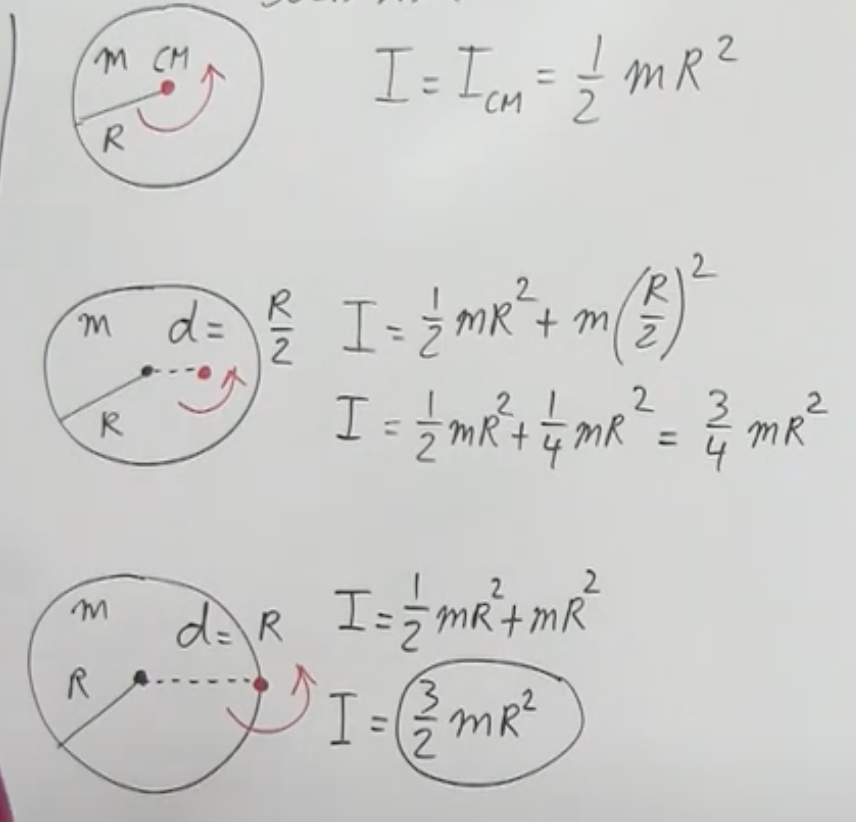 m CM
R
I = I_CM = 1/2 mR²
m d = R/2
R
I = 1/2 mR² + m(R/2)²
I = 1/2 mR² + 1/4 mR² = 3/4 mR²
m
d = R
R
I = 1/2 mR² + mR²
I = 3/2 mR²